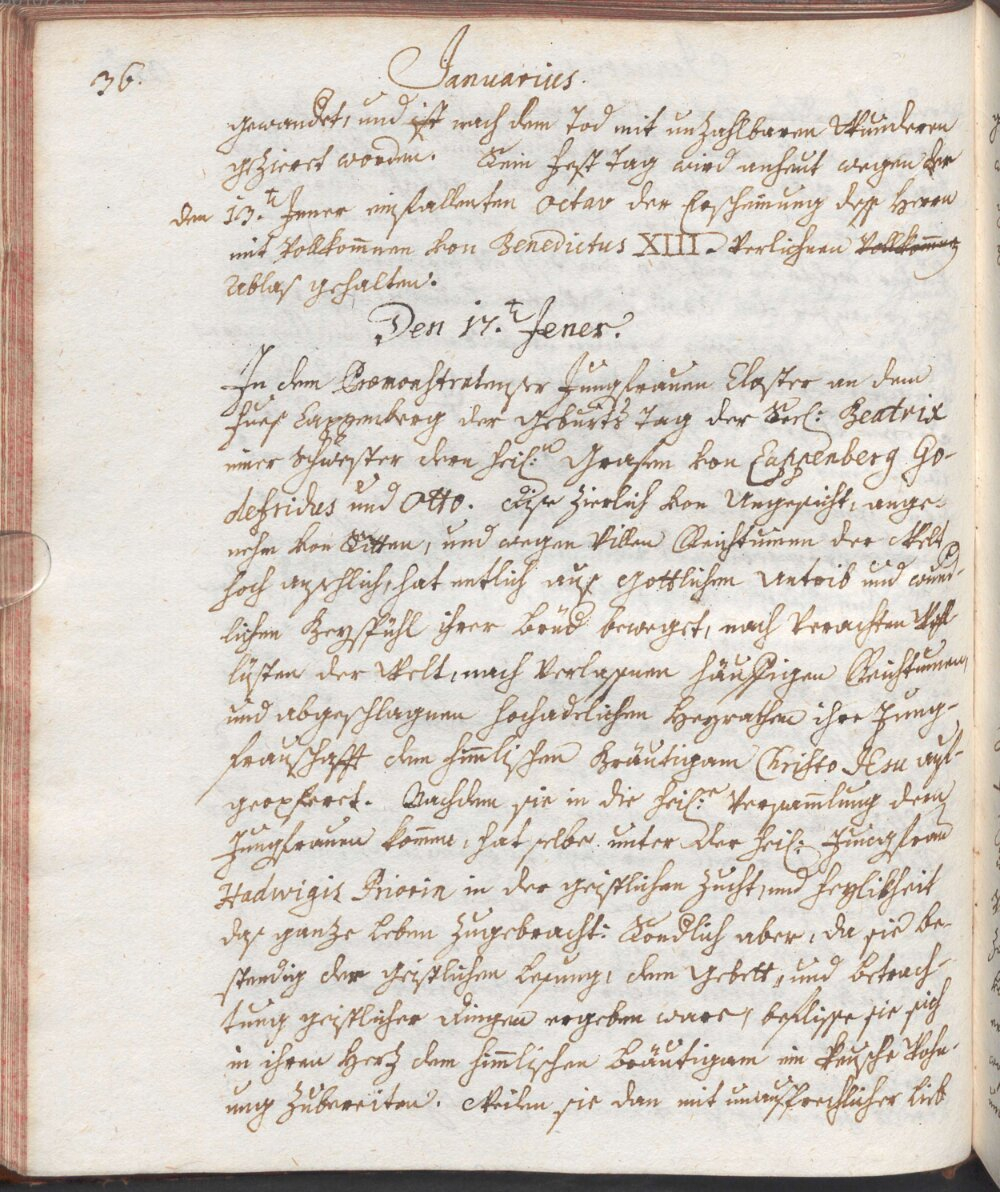 36.
Januarius.
gewandet, und ist nach dem Tod mit unzahlbaren Wunderen
gezieret worden. Kein fest Tag wird anheut wegen der
den 13.t Jener einfallenten Octav der Erscheinung dess Herrn
mit vollkomnen von Benedictus XIII. verlichnen
Ablas gehalten.
Den 17.t Jener.
In dem Praemonstratenser Jungfrauen Closter an dem
fuess Cappenberg der geburths Tag der Seel: Beatrix
einer Schwester dern heil:n Grafen von Cappenberg Go-
defridus und Otto. dise zierlich von Angesicht, ange-
nehm von Sitten, und wegen villen Reichtumen der Welt
hoch ansehlich, hat entlich aus Gottlichen Antrib und
lichen Beyspühl ihrer Brüd bewegt, nach verachten Woll-
lüsten der Welt, nach verlassnen häuffigen Reichtumen,
und abgeschlagnen hochadelichen Heyrathen ihre Jung-
frauschafft dem himlischen Bräutigam Christo Jesu auf-
geopferet. Nachdem sie in die heil:e Versammlung dern
Jungfrauen komme, hat selbe unter der heil: Jungfrau
Hadwigis Priorin in der geistlichen Zucht, und heylikheit
das ganze Leben zugebracht: Kondlich aber, da sie be-
stendig der geistlichen Lesung, dem Gebett, und Betrach-
tung geistlicher dingen ergeben ware, beflisse sie sich
in ihren Hertz dem himlischen Bräutigam ein keusche Wohn-
ung zubereiten. Weilen sie dan mit unaussprechlicher Lieb